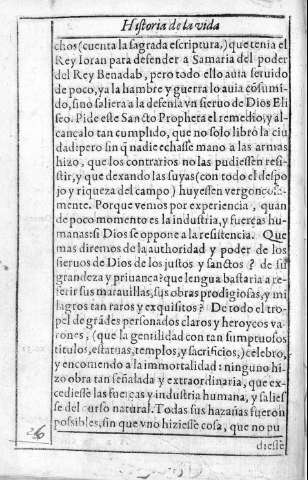 Historia de la vida
chos (cuenta la sagrada escriptura,) que tenia el
Rey Ioran para defender a Samaria del poder
del Rey Benadab, pero todo ello auia seruido
de poco, ya la hambre y guerra lo auia cõsumi-
do, sino saliera a la defensa vn sieruo de Dios Eli
seo. Pide este Sancto Propheta el remedio, y al-
cancalo tan cumplido, que no solo libró la ciu
dad: pero sin q̃ nadie echasse mano a las armas
hizo, que los contrarios no las pudiessen resi-
stir, y que dexando las suyas (con todo el despo
jo y riqueza del campo) huyessen vergonçosa-
mente. Porque vemos por experiencia, quan
de poco momento es la industria, y fuerças hu-
manas: si Dios se oppone a la resistencia. Que
mas diremos de la authoridad y poder de los
sieruos de Dios de los justos y sanctos? de su
grandeza y priuança? que lengua bastaria a re-
ferir sus marauillas, sus obras prodigiosas, y mi
lagros tan raros y exquisitos? De todo el tro-
pel de grãdes personados claros y heroycos va
rones, (que la gentilidad con tan sumptuosos
titulos, estatuas, templos, y sacrificios,) celebro,
y encomendo a la immortalidad: ninguno hi-
zo obra tan señalada y extraordinaria, que ex-
cediesse las fuerças y industria humana, y salies
se del curso natural. Todas sus hazañas fueron
possibles, sin que vno hiziesse cosa, que no pu
diesse